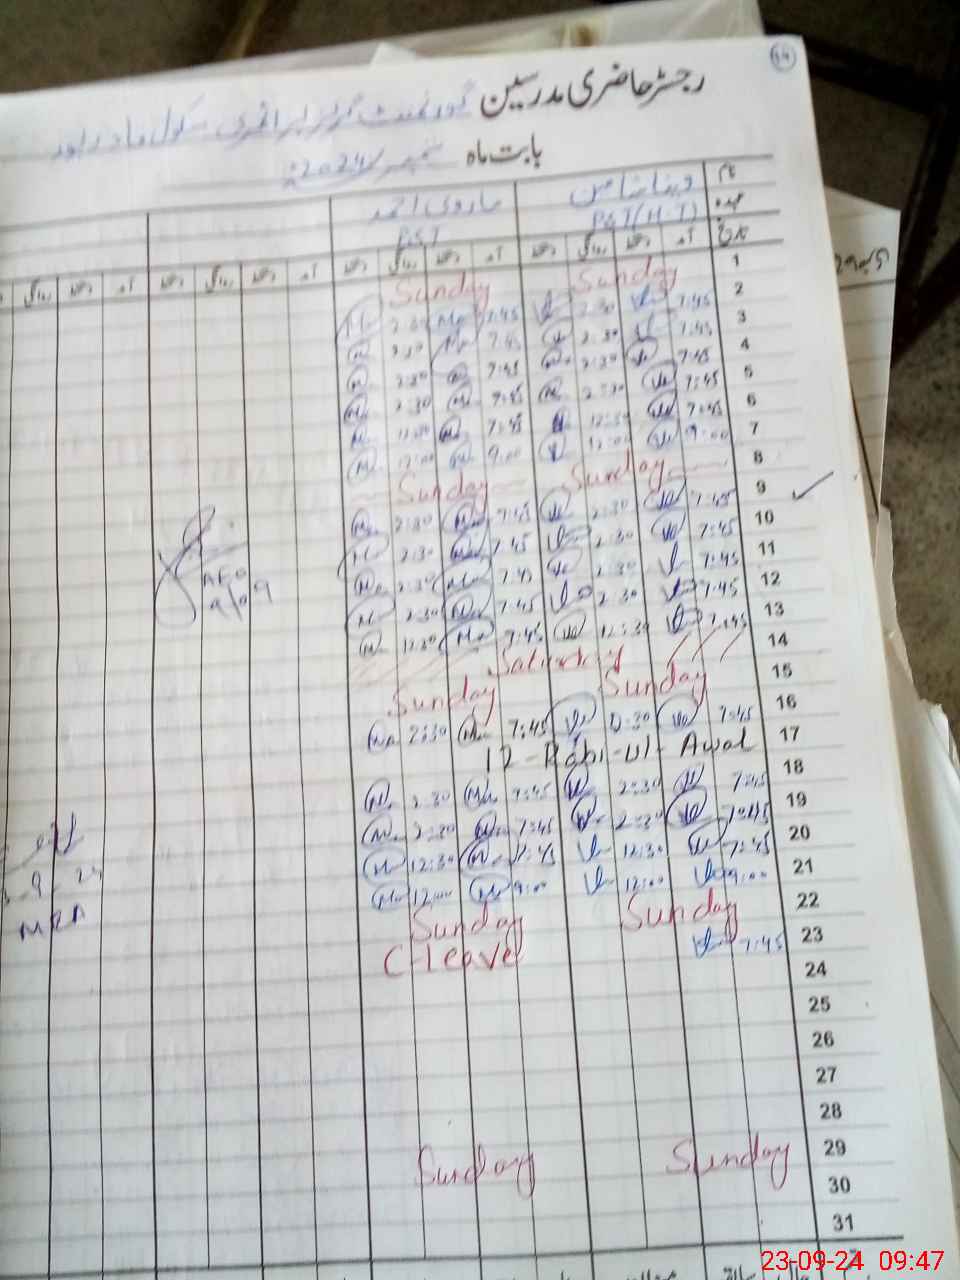 54
رجسٹر حاضری مدرسین گورنمنٹ گرلز پرائمری سکول
بابت ماہ ستمبر 2024
نام
عہدہ PST (H.T) PST
تاریخ آمد دستخط روانگی دستخط آمد دستخط روانگی دستخط آمد دستخط روانگی دستخط آمد دستخط روانگی
1 Sunday Sunday
2 7:45 2:30 7:45 2:30
3 7:45 2:30 7:45 2:30
4 7:45 2:30 7:45 2:30
5 7:45 2:30 7:45 2:30
6 7:45 12:30 7:45
7 9:00 12:00 9:00 12:00
8 Sunday Sunday
9 7:45 2:30 7:45 2:30
10 7:45 2:30 7:45 2:30
11 7:45 2:30 7:45 2:30
12 7:45 2:30 7:45 2:30
13 7:45 12:30 7:45 12:30
14 Saturday
15 Sunday Sunday
16 7:45 2:30 7:45 2:30
17 12-Rabi-ul-Awal
18 7:45 2:30 7:45 2:30
19 7:45 2:30 7:45 2:30
20 7:45 12:30 7:45 12:30
21 9:00 12:00 9:00 12:00
22 Sunday Sunday
23 7:45 C-leave
24
25
26
27
28
29 Sunday Sunday
30
31
AEO
9/09
23-09-24 09:47